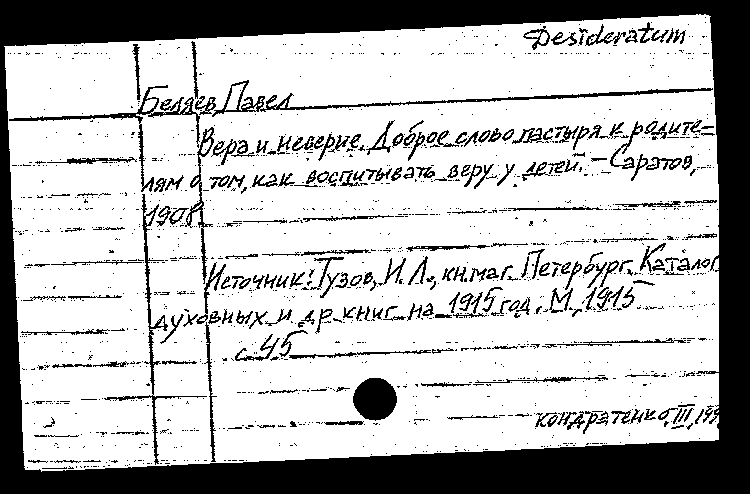 Desideratum
Беляев Павел
Вера и неверие. Доброе слово пастыря к родите-
лям о том, как воспитывать веру у детей. – Саратов,
1908
Источник: Тузов, И. Л., кн. маг. Петербург. Каталог
духовных и др книг на 1915 год. М, 1915
с 45
Кондратенко, III, 199